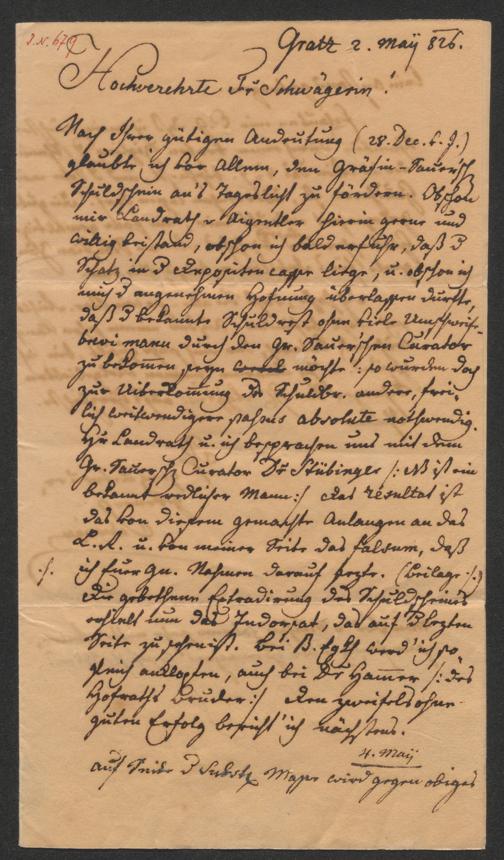 I.N. 679
Gratz 2. Maÿ 826.
Hochverehrte Fr Schwägerin!
Nach Ihrer gütigen Andeutung (28. Dec. v. J.)
glaubte ich vor Allem, den Gräfin-Sauer'sch
Schuldschein an's Tageslicht zu fördern. Obschon
mir Landrath v Aigentler hierin gerne und
willig beistand, obschon ich bald erfuhr, daß d
Schatz in d Depositen casse liege, u. obschon ich
mich d angenehmen Hofnung überlassen durfte,
daß d bekannte Schuldrest ohne viele Umschweife
durch den Gr. Sauerschen Curator
zu bekommen seyn möchte: so wurden doch
zur Uiberkommung des Schuldbr. andere, frei-
lich weitwendigere absolute nothwendig.
Hr Landrath u. ich besprachen uns mit dem
Gr. Sauersch Curator Dr Stübinger /: NB ist ein
bekannt redlicher Mann :/ Das resultat ist
das von diesem gemachte Anlangen an das
L. R. u. von meiner Seite das falsum, daß
ich Euer Gn. Nahmen darauf sezte. (Beilage ·/·)
·/· Die gebethene Extradirung des Schuldscheines
erhielt nun das Indorsat, das auf d lezten
Seite zu sehen ist. Bei B. werd' ich so
gleich anklopfen, auch bei Dr Hammer /: des
Hofraths Bruder :/ Den zweifelsohne-
guten Erfolg bericht' ich nächstens.
4. Maÿ
auf Seite d Masse wird gegen obiges